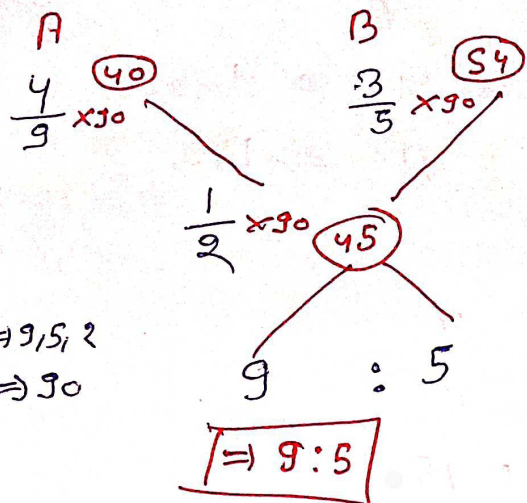 A B
4/9 ×90 40 3/5 ×90 54
1/2 ×90 45
⇒ 9, 5, 2
⇒ 90
9 : 5
⇒ 9:5